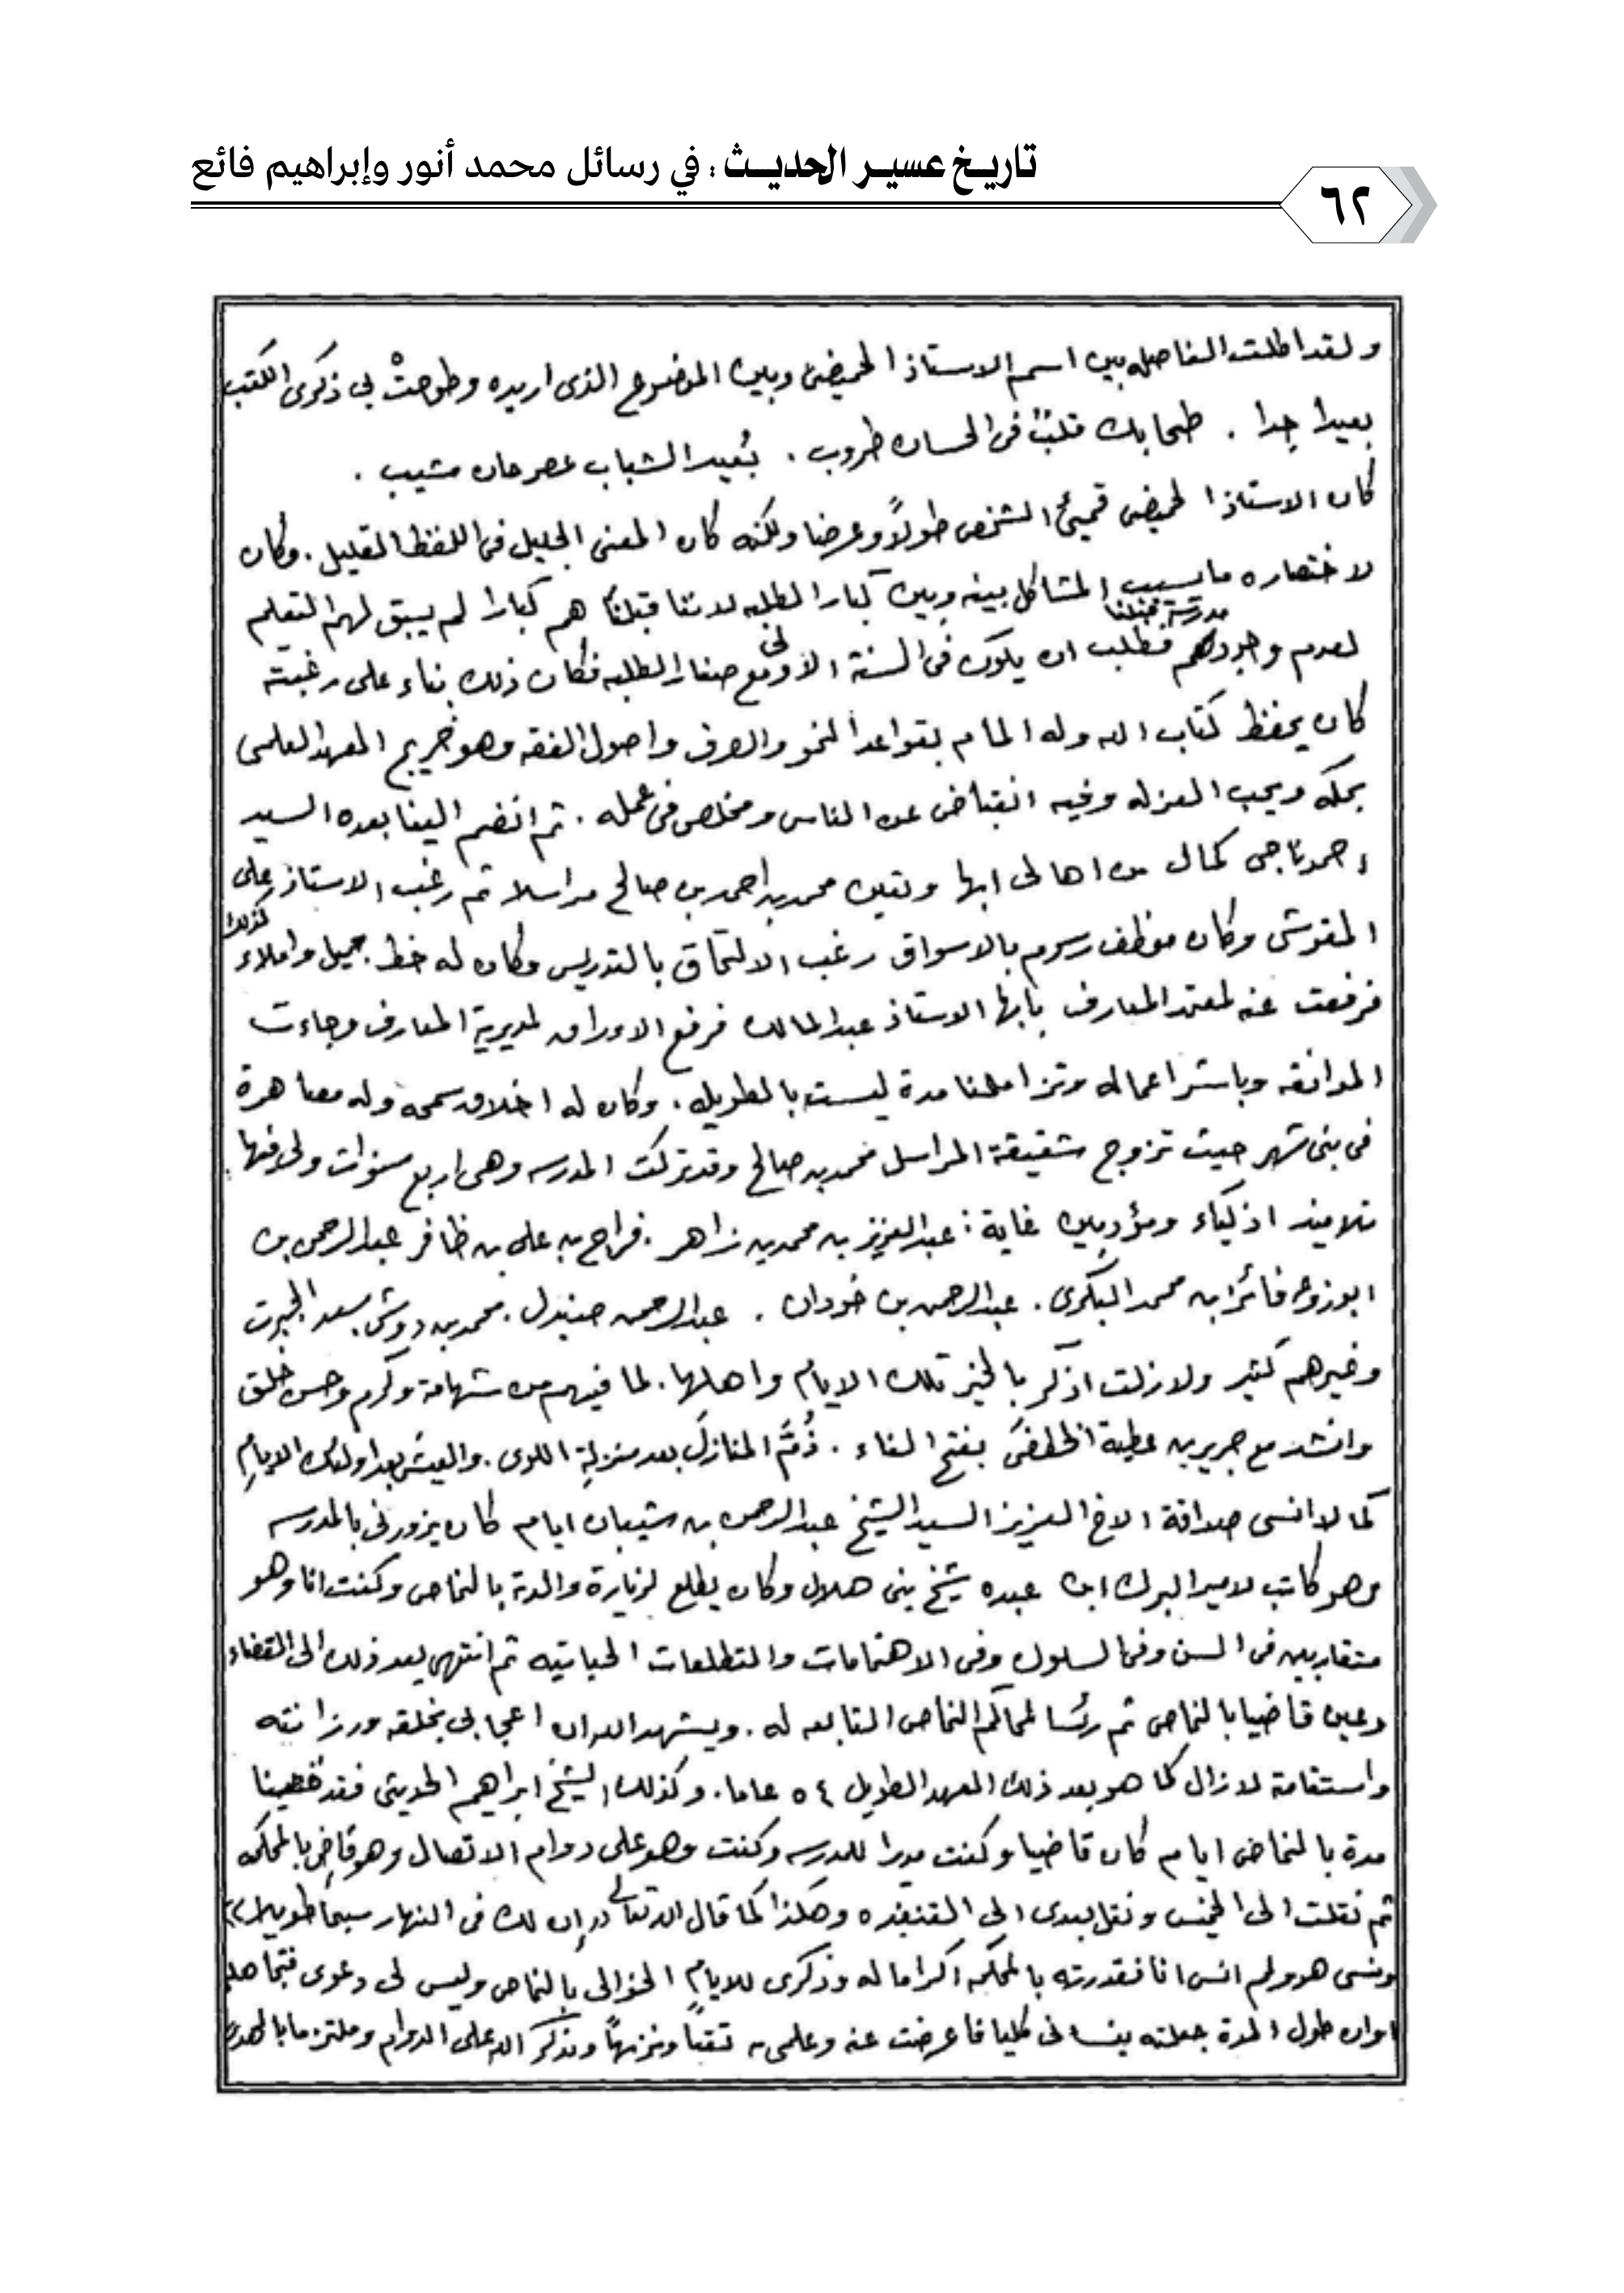 تاريخ عسير الحديث : في رسائل محمد أنور وإبراهيم فائع
٦٢
ولقد اطلت الفاصله بين اسم الاستاذ الحميضى وبين الموضوع الذى اريده وطوحتْ بى ذكرى الكتب
بعيدا جدا . طحا بك قلبٌ فى الحسان طروب . بُعيد الشباب عصر حان مشيب .
كان الاستاذ الحميضى قميئ الشخص طولاً وعرضا ولكنه كان المعنى الجليل فى اللفظ القليل . وكان
لاختصاره ما يسبب المشاكل بينه وبين كبار الطلبه لاننا قبلنا هم كبارا لم يسبق لهم التعليم
لعدم وجود مدرسة قبلنا فطلب ان يكون فى السنة الاولى مع صغار الطلبه فكان ذلك بناء على رغبته
كان يحفظ كتاب الله وله المام بقواعد النحو والصرف واصول الفقه وهو خريج المعهد العلمى
بمكه ويحب العزله وفيه انقباض عن الناس ومخلص فى عمله . ثم انضم الينا بعده السيد
احمد ناجى كمال من اهالى ابها وتعين محمد بن احمد بن صالح مراسلا ثم رغب الاستاذ على
المقوشى وكان موظف رسوم بالاسواق رغب الالتحاق بالتدريس وكان له خط جميل واملاء كذلك
فرفعت عنه لمعتمد المعارف بابها الاستاذ عبد المالك فرفع الاوراق لمديرية المعارف وجاءت
الموافقه وباشر اعماله وتزاملنا مدة ليست بالطويله . وكان له اخلاق سمحه وله مصاهرة
فى بنى شهر حيث تزوج شقيقة المراسل محمد بن صالح وقد تركت المدرسه وهى اربع سنوات ولى فيها
تلاميذ اذكياء ومؤدبين غاية : عبد العزيز بن محمد بن زاهر . فراج بن على بن ظافر عبد الرحمن بن
ابوزوعه فائز ابن محمد البكرى . عبد الرحمن بن خودان . عبد الرحمن صنيدل . محمد بن دوش . سعد الجبرت
وغيرهم كثير ولازلت اذكر بالخير تلك الايام واهلها . لما فيهم من شهامة وكرم وحسن خلق
وانشد مع جرير بن عطية الخطفى بفتح الفاء . ذُمَّ المنازلَ بعد منزلةِ اللوى . والعيش بعد اولئك الايامِ
كما لا انسى صداقة الاخ العزيز السيد الشيخ عبد الرحمن بن شيبان ايام كان يزورنى بالمدرسه
وهو كاتب لامير البرك ابن عبده شيخ بنى هلال وكان يطلع لزيارة والدة بالنماص وكنت انا وهو
متقاربين فى السن وفى السلوك وفى الاهتمامات والتطلعات الحياتيه ثم انتهى بعد ذلك الى القضاء
وعين قاضيا بالنماص ثم رئسا لمحاكم النماص التابعه له . ويشهد الله ان اعجابى بخلقه ورزانته
واستقامة لازال كما هو بعد ذلك العهد الطويل ٥٤ عاما . وكذلك الشيخ ابراهيم الحديثى فقد قضينا
مدة بالنماص ايام كان قاضيا وكنت مديرا للمدرسه وكنت وهو على دوام الاتصال وهو قاضى بالمحكمه
ثم نقلت الى الخميس ونقل بعدى الى القنفذه وهكذا كما قال الله تعالى (( ان لك فى النهار سبحا طويلا ))
ونسى هو ولم انس انا فقد زرته بالمحكمه اكراما له وذكرى للايام الخوالى بالنماص وليس لى دعوى فتجاهل
او ان طول المدة جعلته ينسانى كليا فاعرضت عنه وعلمى به تقياً ونزيهاً ويذكر الله على الدوام وملتزما بالهدى